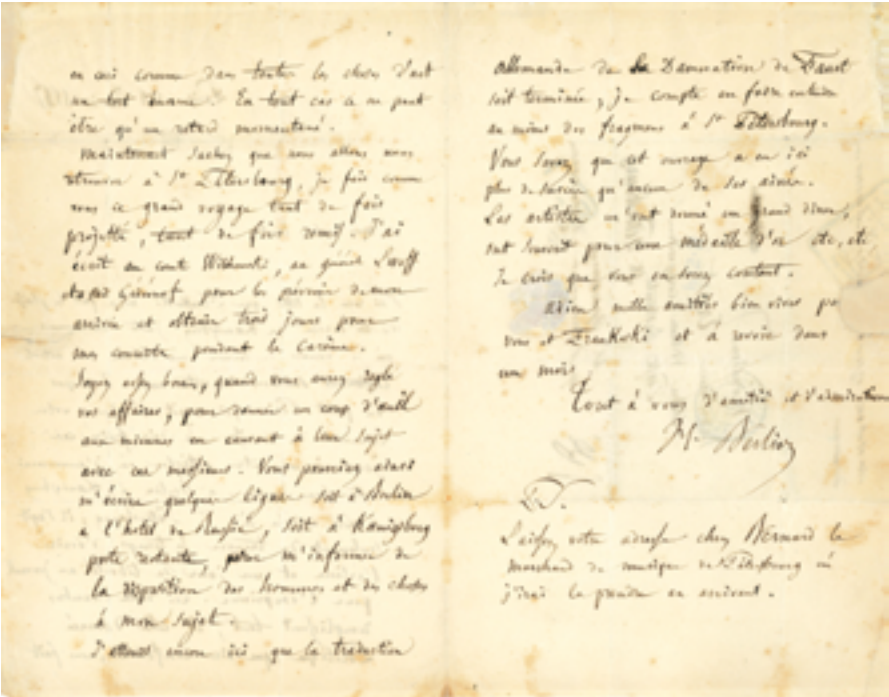 en ceci comme dans toutes les choses d'art
En tout cas ce ne peut
être qu'un retard momentané.
Maintenant sachez que nous allons nous
retrouver à St Pétersbourg, je fais comme
vous ce grand voyage tant de fois
projetté, tant de fois remis. J'ai
écrit au comte Wilhourski, au général Lwoff
et à Mr pour les prévenir de mon
arrivée et obtenir trois jours pour
mes concerts pendant le carême.
Soyez assez bon, quand vous aurez réglé
vos affaires, pour donner un coup d'œil
aux miennes en causant à leur sujet
avec ces messieurs. Vous pourriez ainsi
m'écrire quelques lignes soit à Berlin
à l'hôtel de Russie, soit à Kœnigsberg
poste restante, pour m'informer de
la disposition des hommes et des choses
à mon sujet.
J'attends encore ici que la traduction
allemande de la Damnation de Faust
soit terminée, je compte en faire entendre
au moins des fragmens à St Pétersbourg.
Vous savez que cet ouvrage a eu ici
plus de succès qu'aucun de ses aînés.
Les artistes m'ont donné un grand dîner,
ont souscrit pour une médaille d'or etc, etc
Je crois que vous en serez content.
Adieu mille amitiés bien vives pr
vous et et à revoir dans
un mois
Tout à vous d'amitié et d'admiration
H. Berlioz
Laissez votre adresse chez Bernard le
marchand de musique de Pétersbourg où
j'irai la prendre en arrivant.